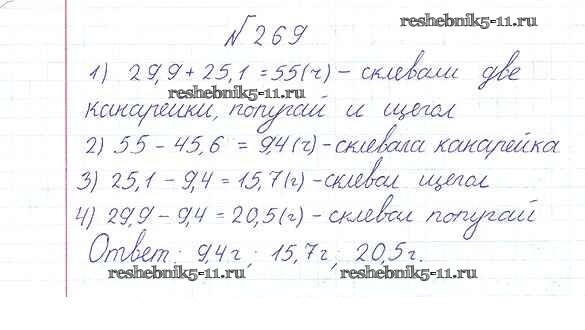 reshebnik5-11.ru
№269
1) 29,9 + 25,1 = 55(г) - склевали две
reshebnik5-11.ru
канарейки, попугай и щегол
2) 55 - 45,6 = 9,4(г) - склевала канарейка
3) 25,1 - 9,4 = 15,7(г) - склевал щегол
4) 29,9 - 9,4 = 20,5(г) - склевал попугай
Ответ: 9,4г; 15,7г; 20,5г.
reshebnik5-11.ru reshebnik5-11.ru